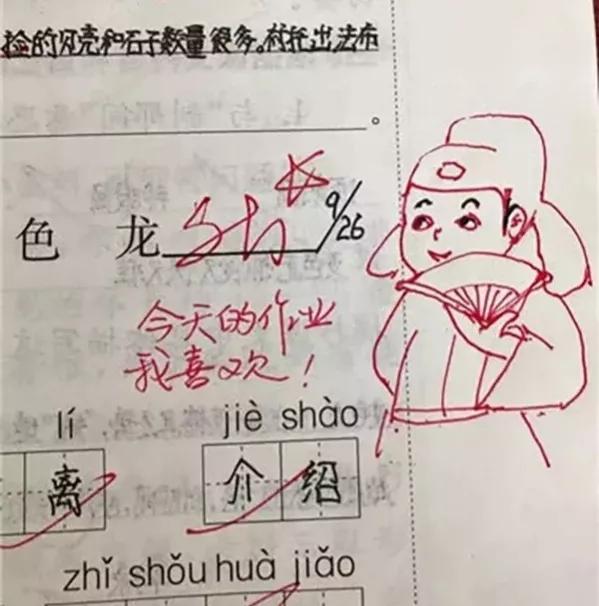 捡的贝壳和石子数量很多。衬托出法布
。
色 龙 9/26
今天的作业
我喜欢！
lí jiè shào
离 介绍
zhǐ shǒu huà jiǎo